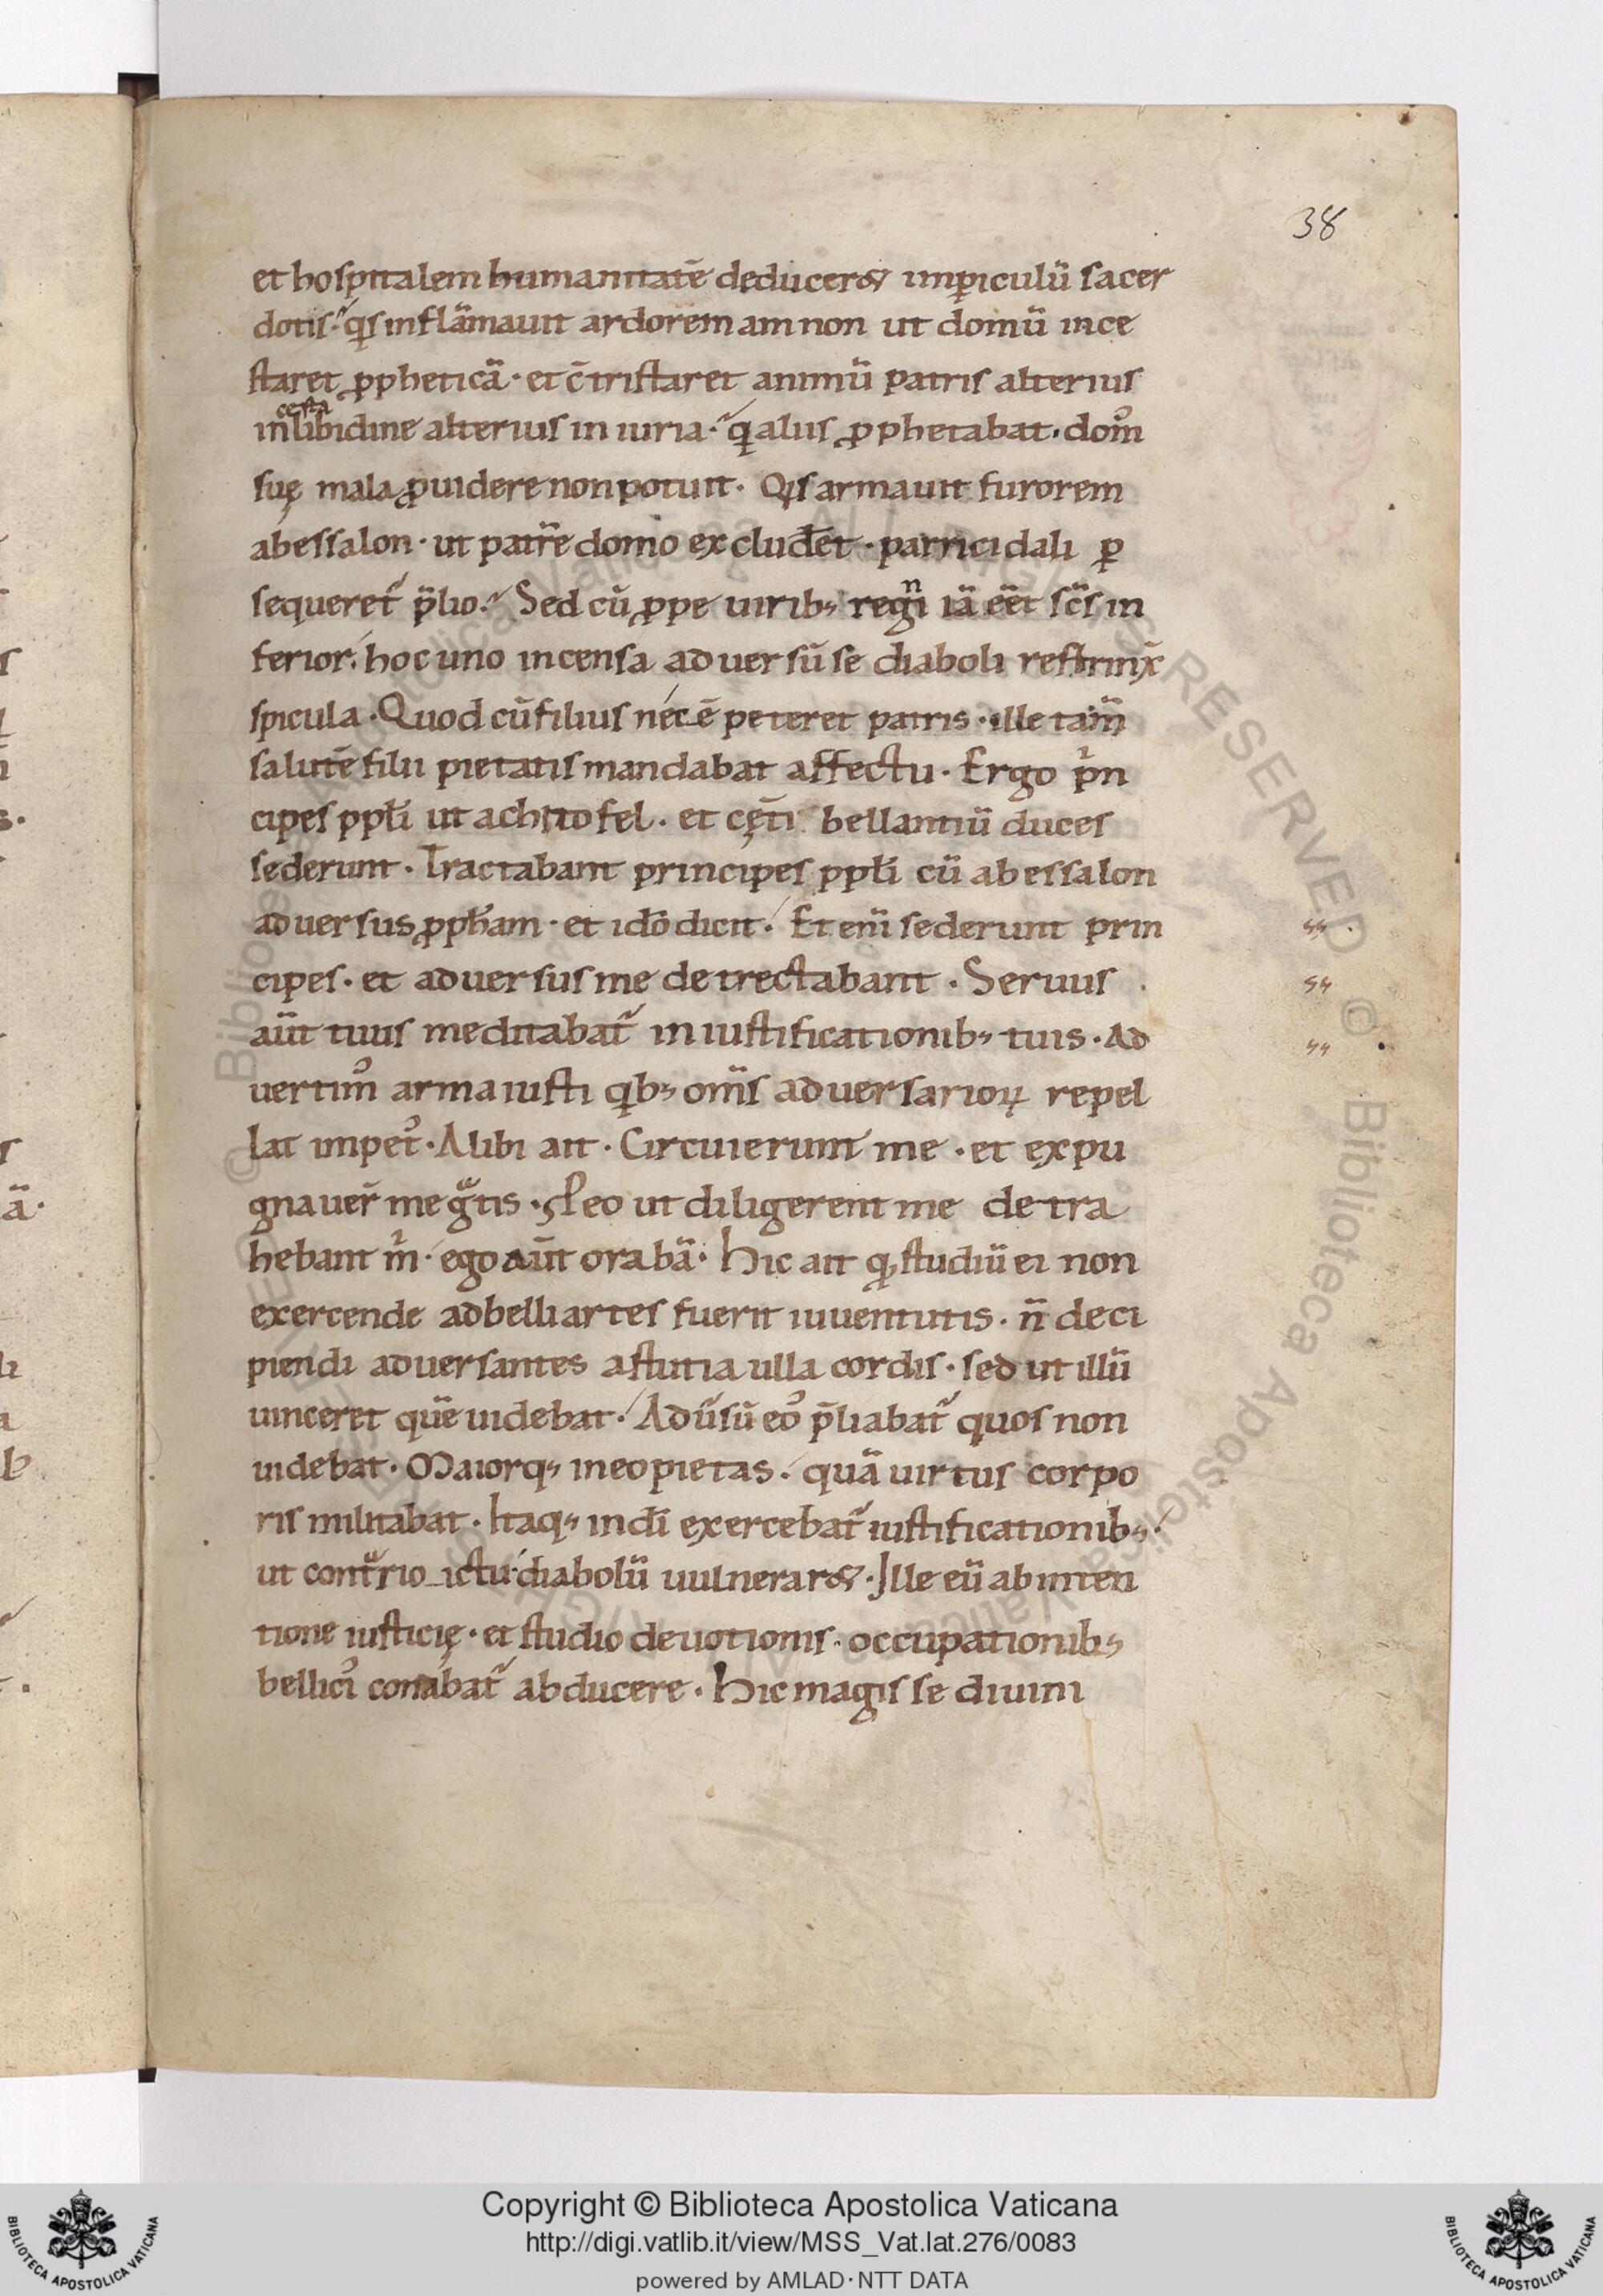 38
et hospitalem humanitatē deducer& impiculū sacer
dotis· qs inflāmauit ardorem amnon ut domū ince
staret ppheticā· et c̄tristaret animū patris alterius
cesta
inlibidine alterius in iuria· q aliis pphetabat· dom᾿
suę mala puidere non potuit· Qs armauit furorem
abessalon· ut patrē domo excludet̄· parricidali p
sequeret᷑ p̄lio· Sed cū ppe uirib; regni iā eēt sc̄s in
ferior, hoc uno incensa aduersū se diaboli restrinx̄
spicula· Quod cū filius necē peteret patris· ille tam̄
salutē filii pietatis mandabat affectu· Ergo p̄n
cipes ppl̄i ut achitofel· et cęt̄i bellantiū duces
sederunt· Tractabant principes ppl̄i cū abessalon
aduersus pph̄am· et idō dicit· Et eni̅ sederunt prin
cipes· et aduersus me detrectabant· Seruus
aūt tuus meditabat᷑ in iustificationib; tuis· Ad
uertim᾿ arma iusti qb; om̄s aduersarioꝝ repel
lat impet᾿· Alibi ait· Circuierunt me· et expu
gnauer̄ me gͣtis· Peo ut diligerent me detra
hebant m̄· ego aūt orabā· Hic ait q, studiū ei non
exercende ad belli artes fuerit iuuentutis· n̄ deci
piendi aduersantes astutia ulla cordis· sed ut illū
uinceret quē uidebat· Adu̅sū eo᾿ p̄liabat᷑ quos non
uidebat· Maiorq; in eo pietas· quā uirtus corpo
ris militabat· Itaq; indi̅ exercebat᷑ iustificationib;·
ut contͣrio ictu diabolū uulnerar&· Ille eū ab inten
tione iusticię· et studio deuotionis· occupationib;
bellici᾿ conabat᷑ abducere· Hic magis se diuini
Copyright © Biblioteca Apostolica Vaticana
http://digi.vatlib.it/view/MSS_Vat.lat.276/0083
powered by AMLAD·NTT DATA
BIBLIOTECA APOSTOLICA VATICANA
BIBLIOTECA APOSTOLICA VATICANA